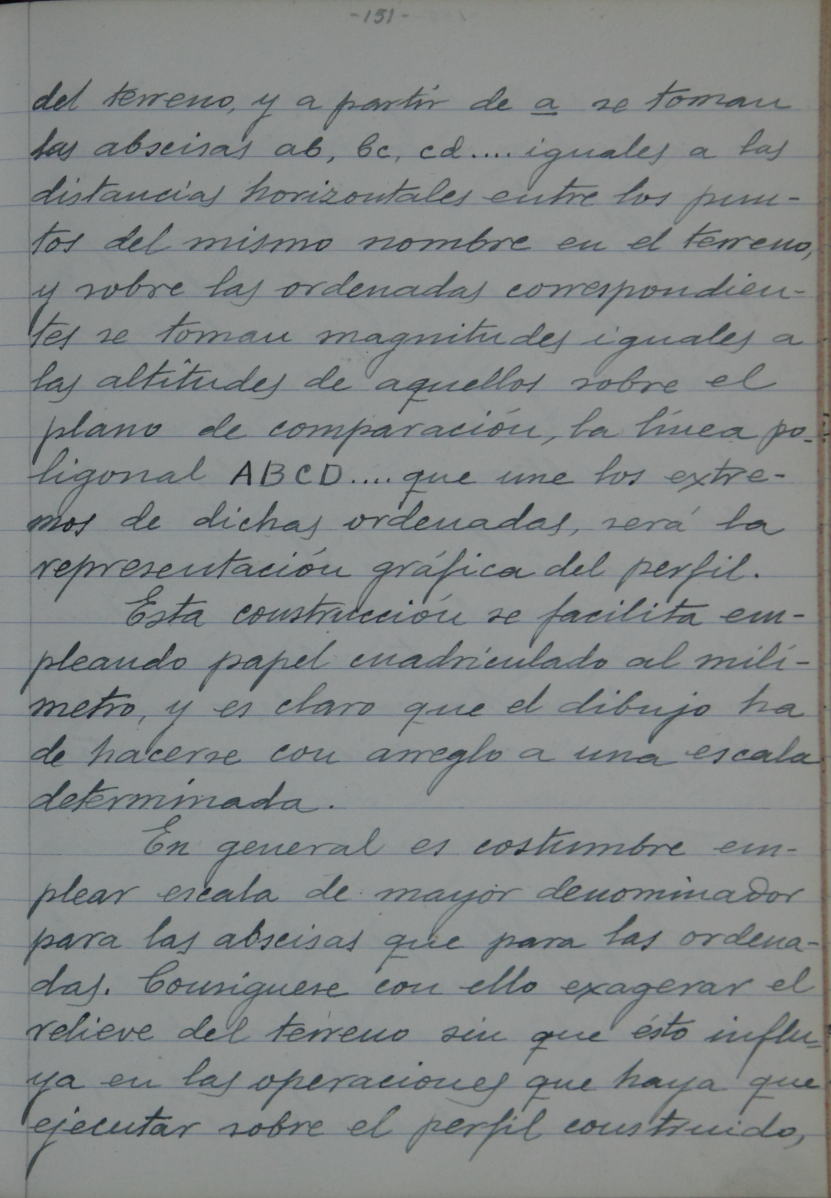 -151-
del terreno, y a partir de a se toman
las abscisas ab, bc, cd.... iguales a las
distancias horizontales entre los pun-
tos del mismo nombre en el terreno,
y sobre las ordenadas correspondien-
tes se toman magnitudes iguales a
las altitudes de aquellos sobre el
plano de comparación, la línea po-
ligonal ABCD.... que une los extre-
mos de dichas ordenadas, será la
representación gráfica del perfil.
Esta construcción se facilita em-
pleando papel cuadriculado al milí-
metro, y es claro que el dibujo ha
de hacerse con arreglo a una escala
determinada.
En general es costumbre em-
plear escala de mayor denominador
para las abscisas que para las ordena-
das. Consíguese con ello exagerar el
relieve del terreno sin que ésto influ-
ya en las operaciones que haya que
ejecutar sobre el perfil construido,